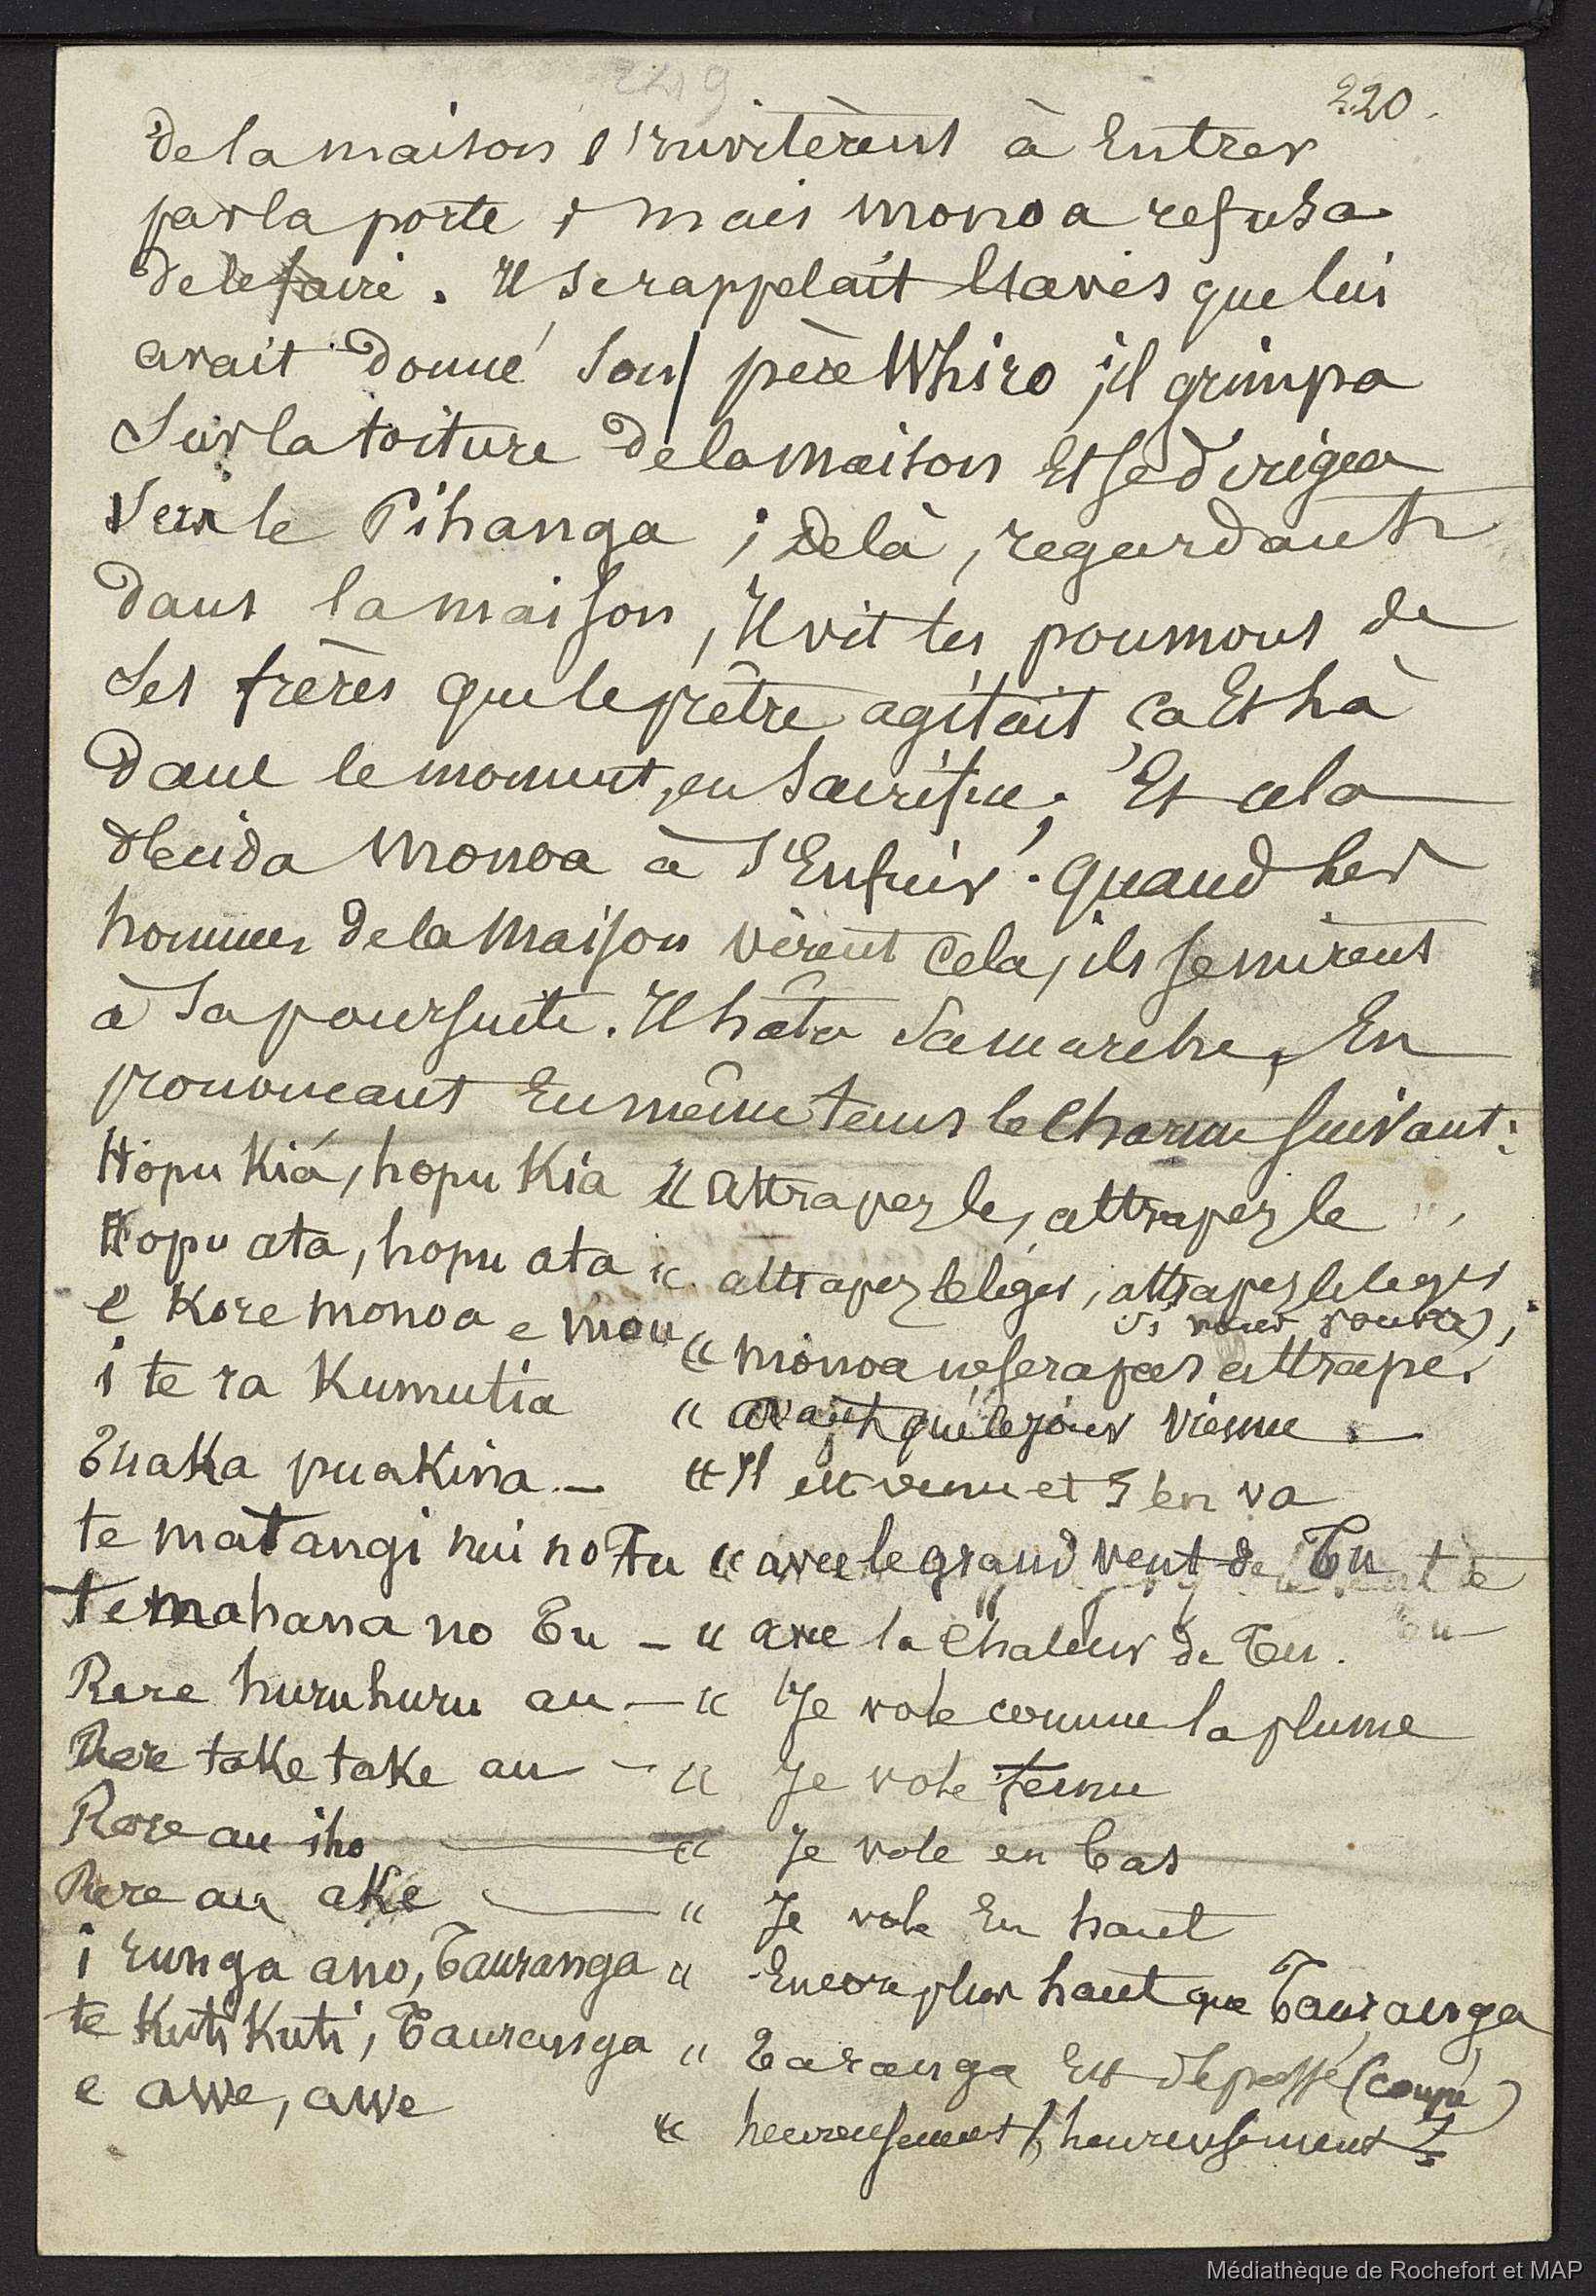 219
220.
de la maison l'invitèrent à Entrer
par la porte ; mais monoa refusa
de le faire. Il se rappelait les avis que lui
avait donné son père Whiro ; il grimpa
sur la toiture de la maison Et se dirigea
vers le Pihanga ; de là, regardant
dans la maison, Il vit les poumons de
ses frères que le prêtre agitait ça Et là
dans le moment, en sacrifice ; Et cela
décida monoa à s'Enfuir. quand les
hommes de la maison virent cela, ils se mirent
à sa poursuite. Il hâta sa marche, En
prononçant En même tems le charme suivant :
Hopu Kia, hopu Kia " attrapez le, attrapez le
Hopu ata, hopu ata " attrapez le
e Kore monoa e mou " monoa ne sera pas attrapé
i te ra Kumutia " avant que le jour vienne.
Enaka puakina — " Il est venu et s'en va
te matangi nui no Tu " avec le grand vent de Tu
te mahana no Tu — " avec la chaleur de Tu.
Rere huruhuru au — " Je vole comme la plume
Rere take take au — " Je vole ferme
Rere au iho — " Je vole en bas
Rere au ake — " Je vole En haut
i runga ano, Tauranga " Encore plus haut que Tauranga
te Kuti Kuti, Tauranga " Taranga Est dépassé (coupé)
e awe, awe " heureusement, heureusement
Médiathèque de Rochefort et MAP